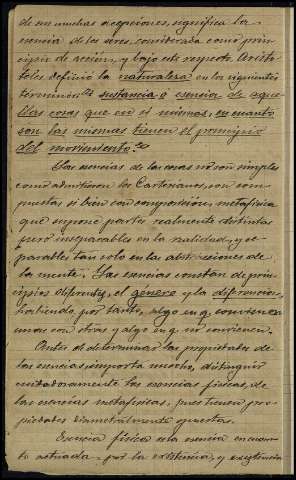 de sus muchas acepciones, significa la
esencia de los seres, considerada como prin-
cipio de accion, y bajo este respecto Aristó-
teles definió la naturaleza en los siguientes
terminos: "sustancia ó esencia de aque-
llas cosas que en si mismas, en cuanto
son las mismas tienen el principio
del movimiento."
Las esencias de las cosas no son simples
como admitieron los Cartesianos, son com-
puestas si bien con composicion metafisica
que supone partes realmente distintas
pero inseparables en la realidad, y se-
parables tan solo en las abstracciones de
la mente. Las esencias constan de prin-
cipios diferentes, el género y la diferencia,
habiendo por tanto, algo en q. convienen
unas con otras y algo en q. no convienen.
Antes de determinar las propiedades de
las esencias, importa mucho, distinguir
cuidadosamente las esencias físicas, de
las esencias metafisicas, pues tienen pro-
piedades diametralmente opuestas.
Esencia física es la esencia en cuan-
to actuada por la existencia, y existencia